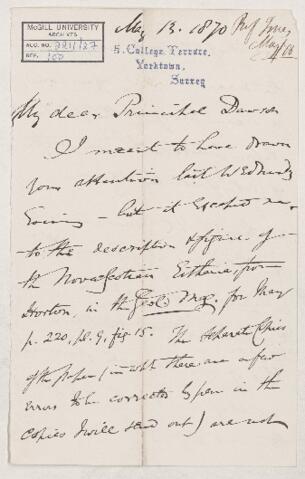 McGILL UNIVERSITY
ARCHIVES
ACC. NO. 2211/27
REF. 100
May 13. 1870
5. College Terrace,
Yorktown,
Surrey
My dear Principal Dawson
I meant to have drawn
your attention last Wednesday
Evening – but it escaped me –
to the description & figure of
the Nova Scotian Estheria, from
Horton, in the Geol. Mag. for May
p. 220, pl. 9, fig. 15. The separate Copies
of the paper (in wh. there are a few
errors to be corrected by pen in the
copies I will send out) are not